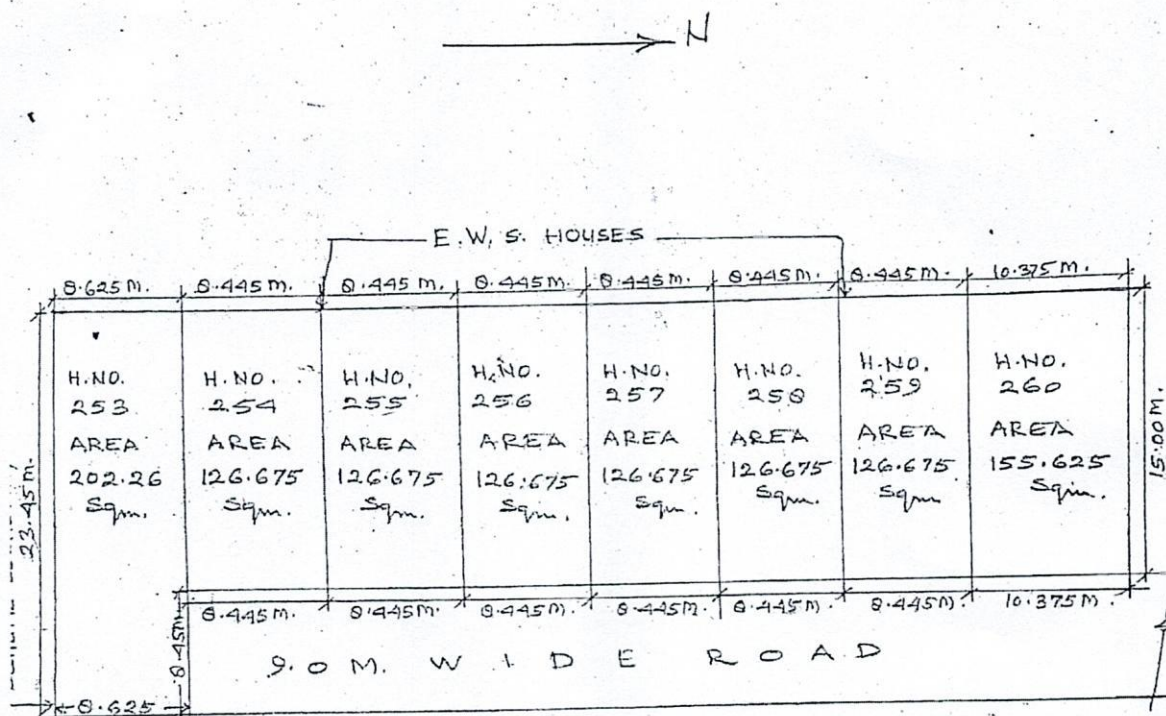 N
E.W.S. HOUSES
8.625M. 8.445M. 8.445M. 8.445M. 8.445M. 8.445M. 8.445M. 10.375M.
H.NO. 253 AREA 202.26 Sqm.
H.NO. 254 AREA 126.675 Sqm.
H.NO. 255 AREA 126.675 Sqm.
H.NO. 256 AREA 126.675 Sqm.
H.NO. 257 AREA 126.675 Sqm.
H.NO. 258 AREA 126.675 Sqm.
H.NO. 259 AREA 126.675 Sqm.
H.NO. 260 AREA 155.625 Sqm.
23.45M.
15.00M.
8.445M. 8.445M. 8.445M. 8.445M. 8.445M. 8.445M. 10.375M.
8.45M
9.0 M. WIDE ROAD
8.625